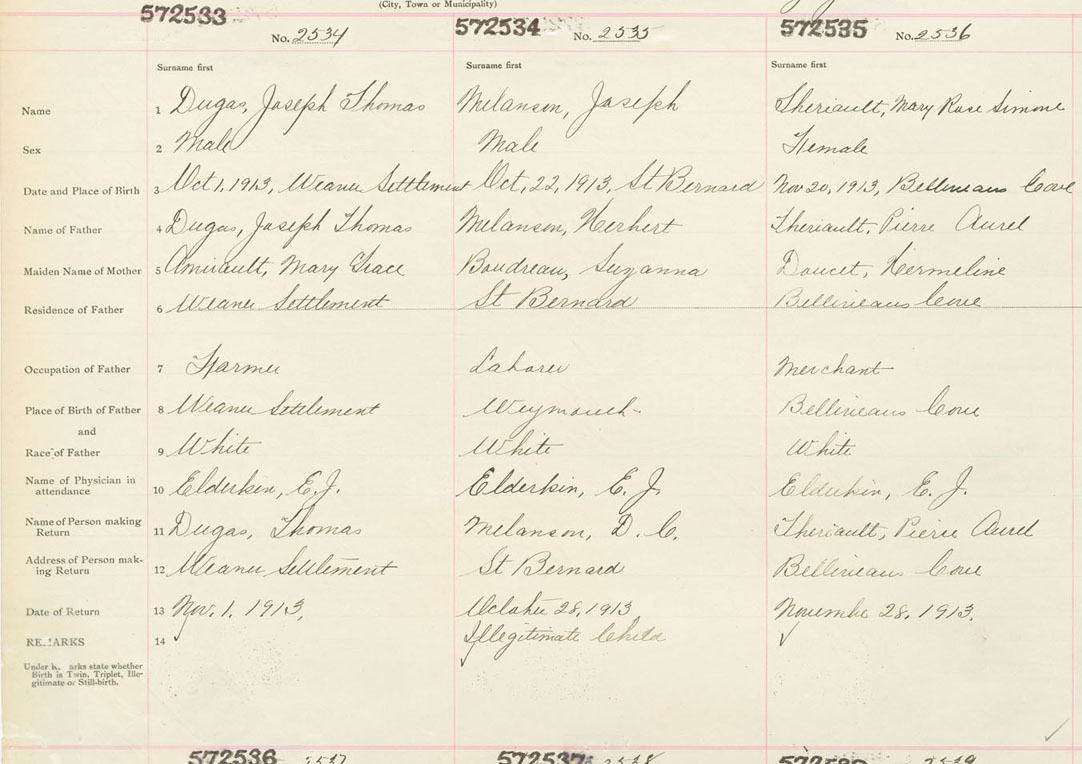 (City, Town or Municipality)
572533 No. 2534 572534 No. 2535 572535 No. 2536
Surname first Surname first Surname first
Name 1 Dugas, Joseph Thomas Melanson, Joseph Theriault, Mary Rose Simone
Sex 2 Male Male Female
Date and Place of Birth 3 Oct 1, 1913, Weaver Settlement Oct, 22, 1913, St Bernard Nov 20, 1913, Belliveaus Cove
Name of Father 4 Dugas, Joseph Thomas Melanson, Herbert Theriault, Pierre Aurel
Maiden Name of Mother 5 Amirault, Mary Grace Boudreau, Suzanna Doucet, Hermeline
Residence of Father 6 Weaver Settlement St Bernard Belliveaus Cove
Occupation of Father 7 Farmer Laborer Merchant
Place of Birth of Father 8 Weaver Settlement Weymouth Belliveaus Cove
and
Race of Father 9 White White White
Name of Physician in attendance 10 Elderkin, E. J. Elderkin, E. J. Elderkin, E. J.
Name of Person making Return 11 Dugas, Thomas Melanson, D. C. Theriault, Pierre Aurel
Address of Person mak-ing Return 12 Weaver Settlement St Bernard Belliveaus Cove
Date of Return 13 Nov. 1, 1913, October 28, 1913 November 28, 1913.
REMARKS 14 Illegitimate Child
Under Remarks state whether
Birth is Twin, Triplet, Ille-
gitimate or Still-birth.
572536 2537 572537 2538 2539